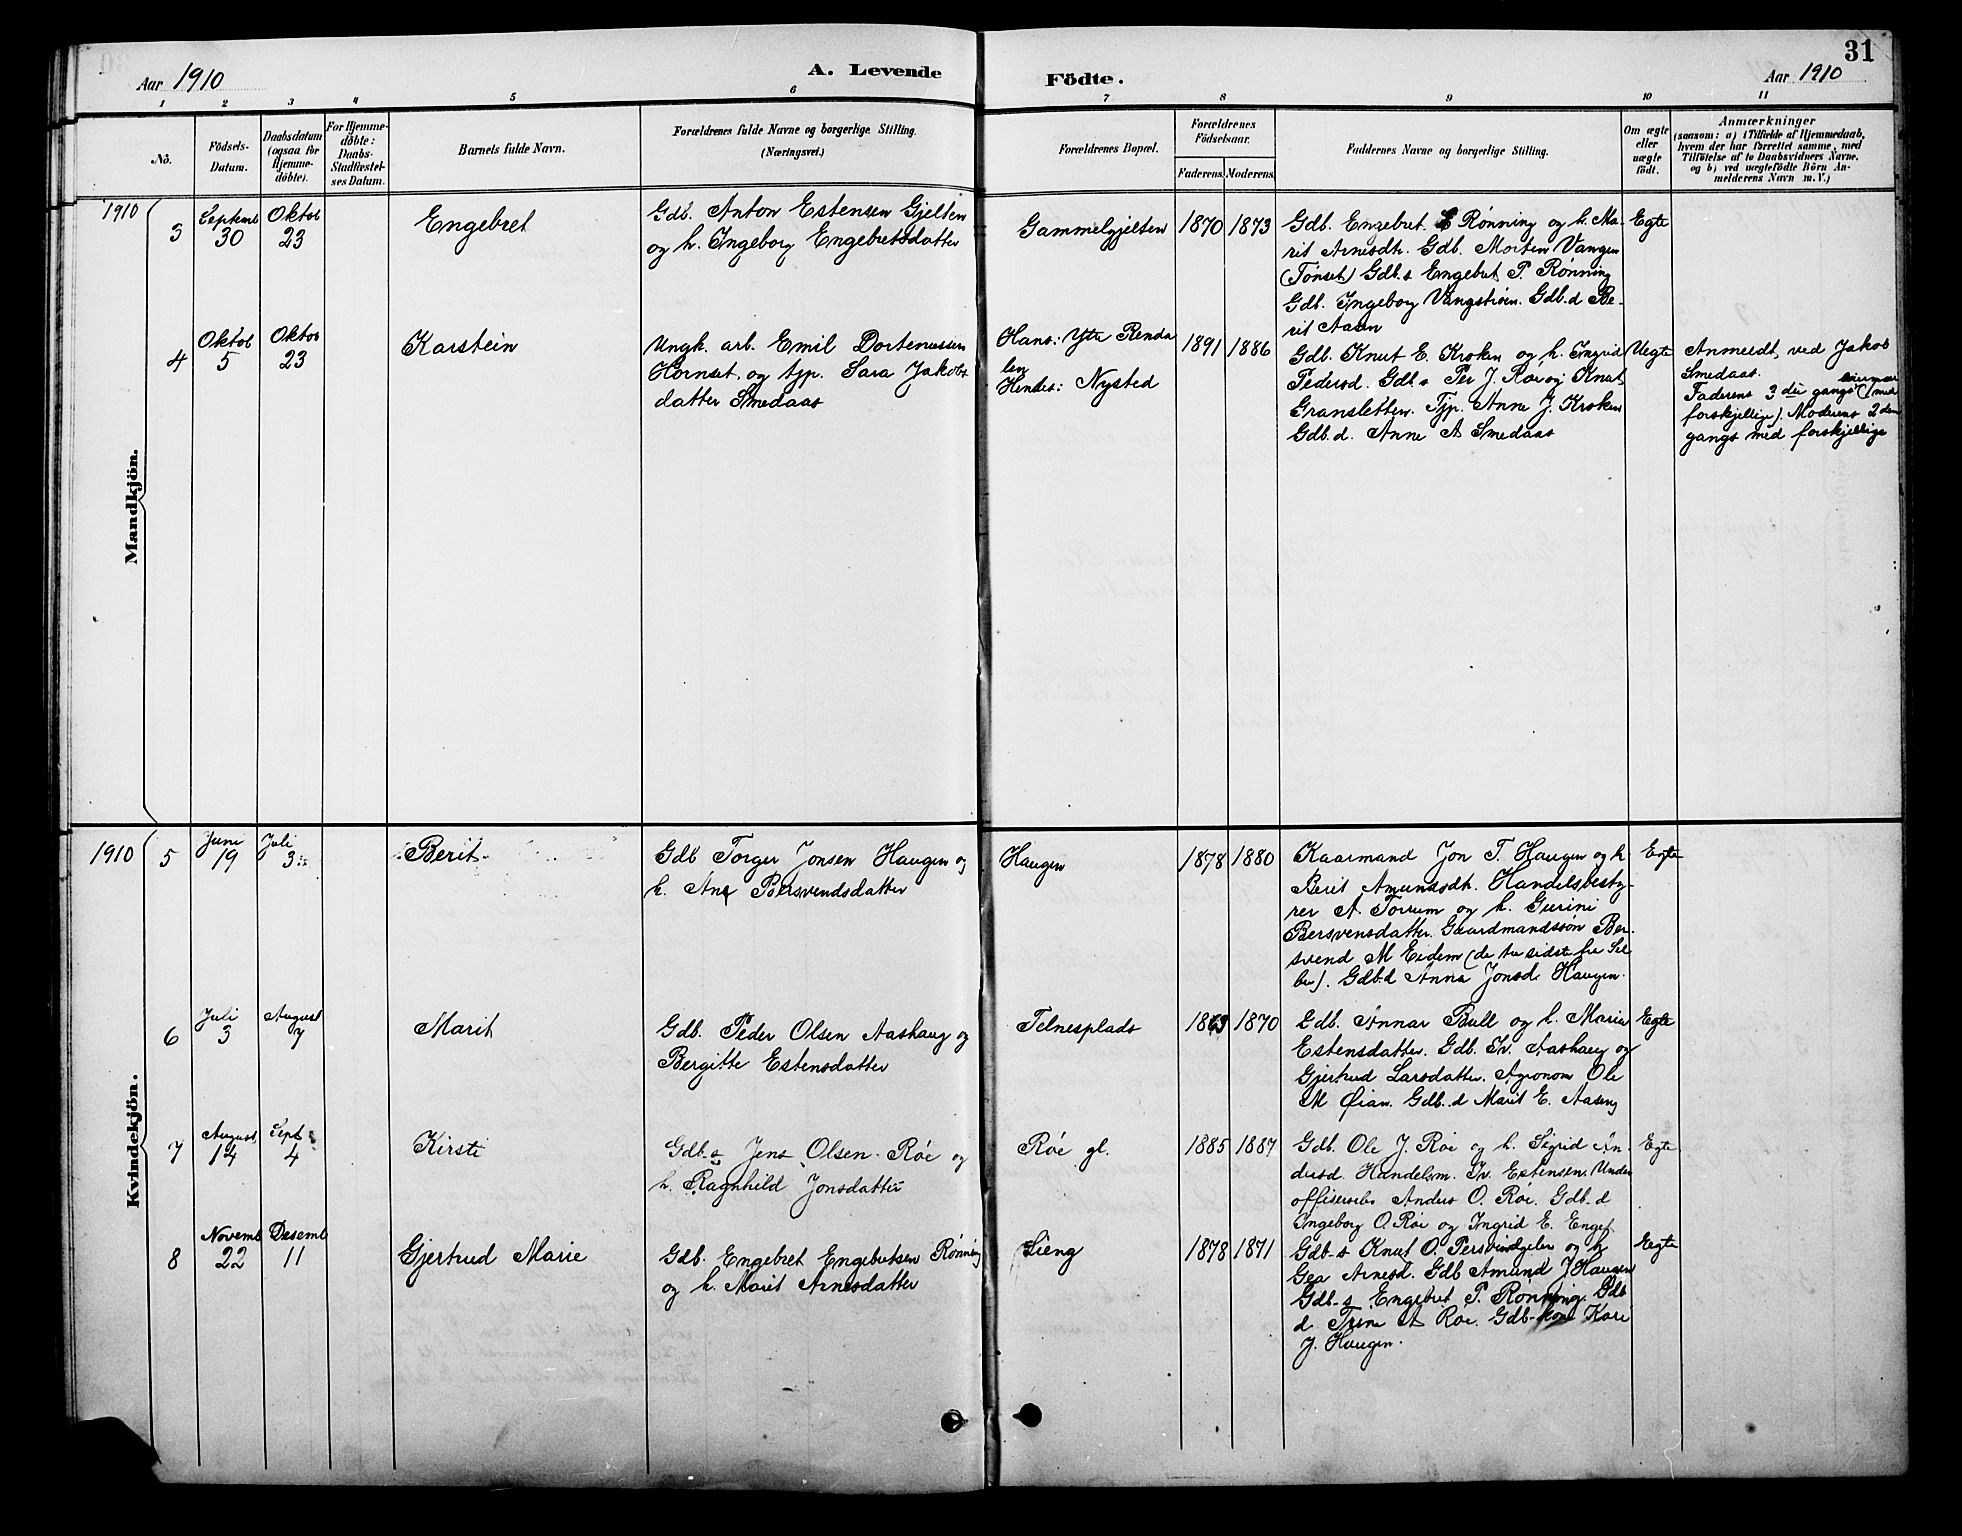 31
Aar 1910
A. Levende
Födte.
Aar 1910
1 2 3 4 5 6 7 8 9 10 11
No.
Födsels-
Datum.
Daabsdatum
(ogsaa for
Hjemme-
döbte).
For Hjemme-
döbte:
Daabs-
Stadfæstel-
ses Datum.
Barnets fulde Navn.
Forældrenes fulde Navne og borgerlige Stilling.
(Næringsvei.)
Forældrenes Bopæl.
Forældrenes
Födselsaar.
Faderens. Moderens.
Faddernes Navne og borgerlige Stilling.
Om ægte
eller
uægte
födt.
Anmærkninger
(saasom: a) i Tilfælde af Hjemmedaab,
hvem der har forrettet samme, med
Tilföielse af to Daabsvidners Navne,
og b) ved uægtefödte Börn An-
melderens Navn m. V.)
Mandkjön.
1910
3
Septemb
30
Oktob
23
Engebret
Gdb. Anton Estensen Gjelten
og h. Ingeborg Engebretsdatter
Gammelgjelten
1870 1873
Gdb. Engebret E Rønning og h. Ma-
rit Arnesdtr. Gdb. Morten Vangen
(Tønset) Gdb.s Engebret P. Rønning
Gdb. Ingeborg Vangstrøen. Gdb.d Be-
rit Aasen
Egte
4
Oktob
5
Oktob
23
Karstein
Ungk. arb. Emil Dortenussen
Hornset og tjp. Sara Jakobs
datter Smedaas
Hans: Ytre Renda
len
Hendes: Nysted
1891 1886
Gdb. Knut E. Kroken og h. Ingrid
Pedersd. Gdb.s Per J. Røe og Knut
Gransletten. Tjp. Anne J. Kroken
Gdb.d. Anne A Smedaas
Uegte
Anmeldt ved Jakob
Smedaas.
Faderens 3 die gangs leiermaal (med
forskjellige). Moderens 2 den
gangs med forskjellige
Kvindekjön.
1910
5
Juni
19
Juli
3
Berit
Gdb Torger Jonsen Haugen og
h. Ane Bersvendsdatter
Haugen
1878 1880
Kaarmand Jon T. Haugen og h
Berit Amundsdt. Handelsbesty-
rer A Forum og h. Gurini
Bersvensdatter. Gaardmandssøn Ber-
svend M Eidem (de tre sidste fra Sel-
bu). Gdb.d Anna Jonsd. Haugen.
Egte
6
Juli
3
August
7
Marit
Gdb. Peder Olsen Aashaug og
Bergitte Estensdatter
Telnesplads
1863 1870
Gdb. Annar Bull og h. Maria
Estensdatter. Gdb. Iv. Aashaug og
Gjertrud Larsdatter. Agronom Ole
M Øian. Gdb.d Marit E. Aaseng
Egte
7
August
14
Sept
4
Kirsti
Gdb.s Jens Olsen Røe og
h. Ragnhild Jonsdatter
Røe gl.
1885 1887
Gdb. Ole J. Røe og h. Sigrid An-
dersd. Handelsm. Iv. Estensen. Under
offisersels Anders O. Røe. Gdb.d
Ingeborg O. Røe og Ingrid E. Enget
Egte
8
Novemb
22
Desemb
11
Gjertrud Marie
Gdb. Engebret Engebretsen Rønning
og h. Marit Arnesdatter
Lieng
1878 1871
Gdb-s Knut O. Persvindgelen og h
Gea Arnesd. Gdb Amund J Haugen
Gdb-s Engebret P. Rønning. Gdb
d Trine A Røe. Gdb-kone Kari
J. Haugen.
Egte